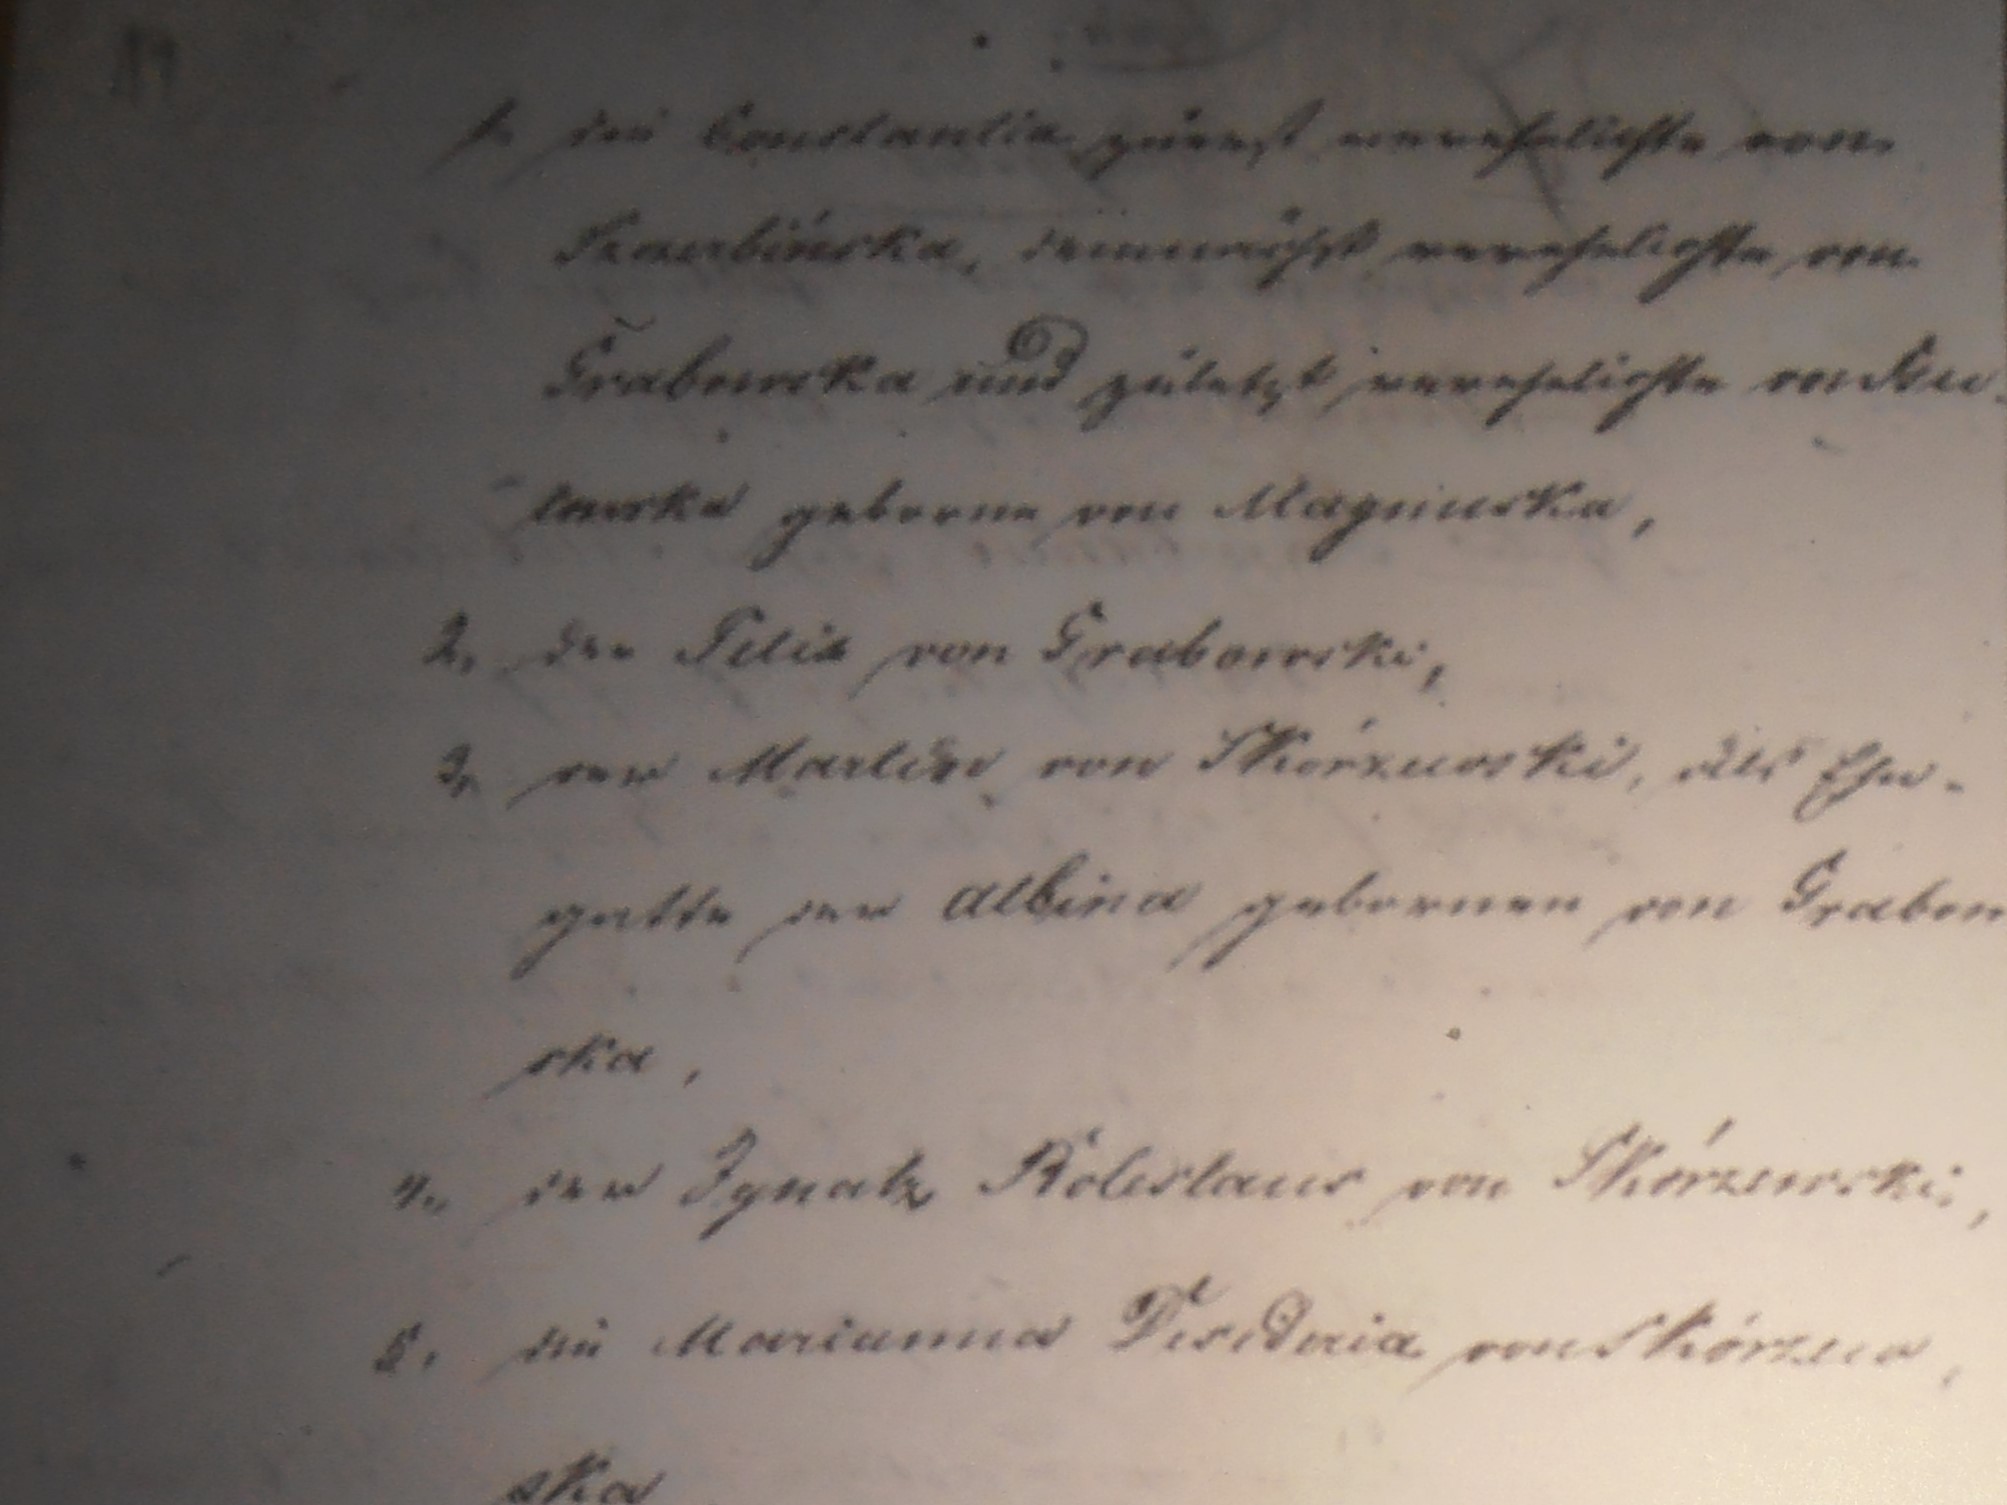 1. die Constantia zuerst verehelichte von
Szczerbińska, demnächst verehelichte von
Grabowska und zuletzt verehelichte von
lowska geborne von Magnuska,
2. der Felix von Grabowski,
3. der Martin von Skórzewski, als Ehe-
gatte der Albina gebornen von Grabow
ska,
4. der Ignatz Boleslaus von Skórzewski,
5. die Marianna Desideria von Skórzew
ska